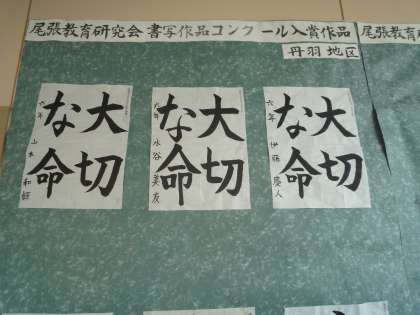 尾張教育研究会 書写作品コンクール入賞作品
尾張教育
丹羽地区
大切
な命
六年 山本 和
大切
な命
六年 水谷美友
大切
な命
六年 伊藤慶人